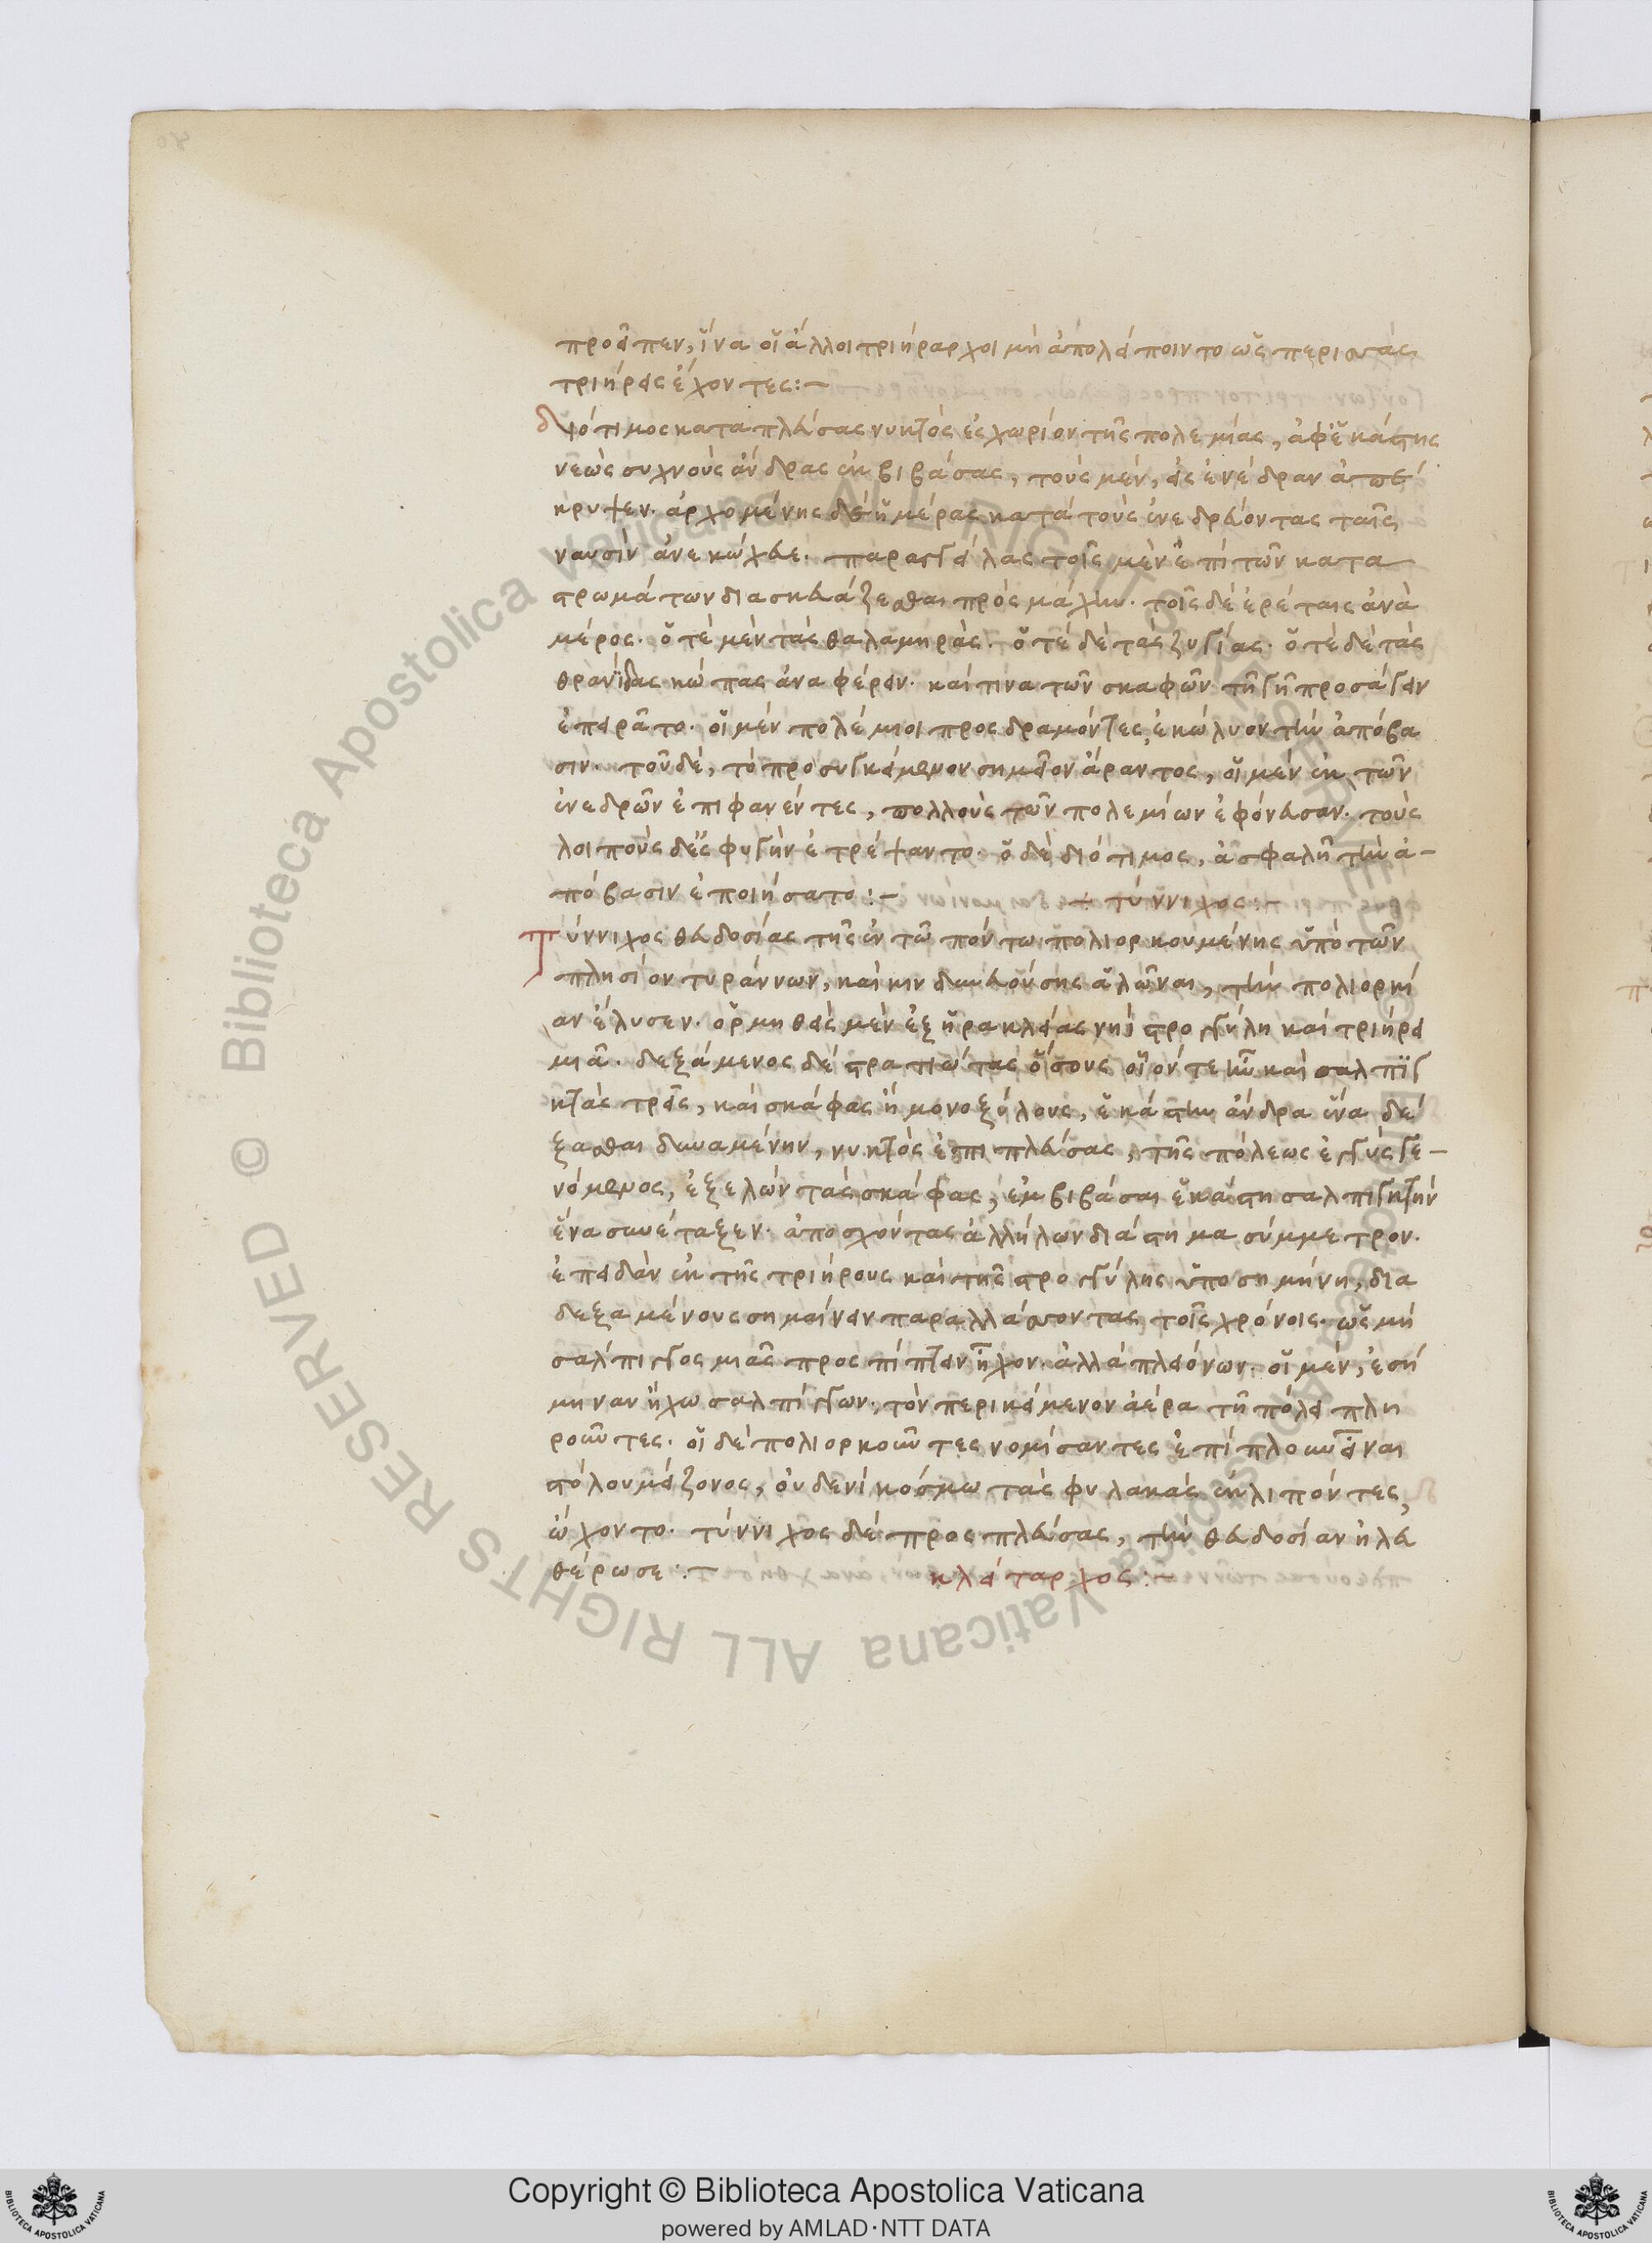 προεῖπεν, ἵνα οἱ ἄλλοι τριήραρχοι μὴ ἀπολείποιντο ὡς περισσὰς
τριήρεις ἔχοντες:-
Διότιμος καταπλεύσας νυκτὸς ἐς χωρίον τῆς πολεμίας, ἀφ' ἑκάστης
νεὼς συχνοὺς ἄνδρας ἐκβιβάσας, τοὺς μὲν, εἰς ἐνέδραν ἀπέ
κρυψεν. ἀρχομένης δὲ ἡμέρας κατὰ τοὺς ἐνεδρεύοντας ταῖς
ναυσὶν ἀνεκώχευε. παραγγείλας τοῖς μὲν ἐπὶ τῶν κατα
στρωμάτων διασκευάζεσθαι πρὸς μάχην. τοῖς δὲ ἐρέταις ἀνὰ
μέρος. ὁτὲ μὲν τὰς θαλαμηρὰς. ὁτὲ δὲ τὰς ζυγίας. ὁτὲ δὲ τὰς
θρανίτιδας κώπας ἀναφέρειν. καί τινα τῶν σκαφῶν τῇ γῇ προσάγειν
ἐπειρᾶτο. οἱ μὲν πολέμιοι προσδραμόντες, ἐκώλυον τὴν ἀπόβα
σιν. τοῦ δὲ, τὸ προσυγκείμενον σημεῖον ἄραντος, οἱ μὲν ἐκ τῶν
ἐνεδρῶν ἐπιφανέντες, πολλοὺς τῶν πολεμίων ἐφόνευσαν. τοὺς
λοιποὺς δὲ ἐς φυγὴν ἐτρέψαντο. ὁ δὲ διότιμος, ἀσφαλῆ τὴν ἀ-
πόβασιν ἐποιήσατο:- + τύννιχος:-
Τύννιχος θευδοσίας τῆς ἐν τῷ πόντω πολιορκουμένης ὑπὸ τῶν
πλησίον τυράννων, καὶ κινδυνευούσης ἁλῶναι, τὴν πολιορκί
αν ἔλυσεν. ὁρμηθεὶς μὲν ἐξ ἡρακλείας νηῒ στρογγύλη καὶ τριήρει
μιᾶ. δεξάμενος δὲ στρατιώτας ὅσους οἷόν τε ἦν καὶ σαλπιγ
κτὰς τρεῖς, καὶ σκάφας ἢ μονοξύλους, ἑκάστην ἄνδρα ἕνα δέ
ξασθαι δυναμένην, νυκτὸς ἐπιπλεύσας, τῆς πόλεως ἐγγὺς γε-
νόμενος, ἐξελὼν τὰς σκάφας, ἐμβιβάσαι ἑκάστη σαλπιγκτὴν
ἕνα συνέταξεν. ἀποσχόντας ἀλλήλων διάστημα σύμμετρον.
ἐπειδὰν ἐκ τῆς τριήρους καὶ τῆς στρογγύλης ὑποσημήνη, δια
δεξαμένους σημαίνειν παραλλάσσοντας τοῖς χρόνοις. ὡς μὴ
σάλπιγγος μιᾶς προσπίπτειν ἦχον. ἀλλὰ πλειόνων. οἱ μὲν, ἐσή
μηναν ἤχω σαλπίγγων, τὸν περικείμενον ἀέρα τῇ πόλει πλη
ροῦντες. οἱ δὲ πολιορκοῦντες νομίσαντες ἐπίπλουν εἶναι
στόλου μείζονος, οὐδενὶ κόσμω τὰς φυλακὰς ἐκλιπόντες,
ὤχοντο. τύννιχος δὲ προσπλεύσας, τὴν θευδοσίαν ἠλευ
θέρωσε:- κλείταρχος:-
Copyright © Biblioteca Apostolica Vaticana
powered by AMLAD·NTT DATA